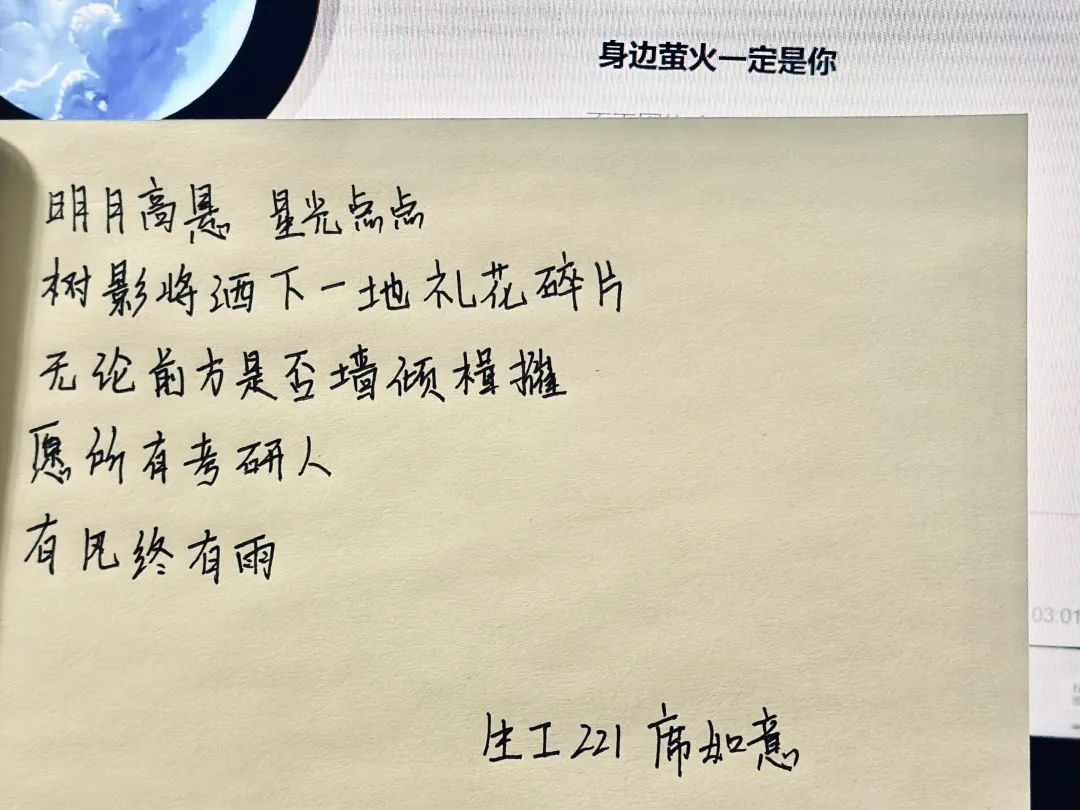 身边萤火一定是你
明月高悬 星光点点
树影将洒下一地礼花碎片
无论前方是否墙倾楫摧
愿所有考研人
有风终有雨
03:01
生工221 席如意